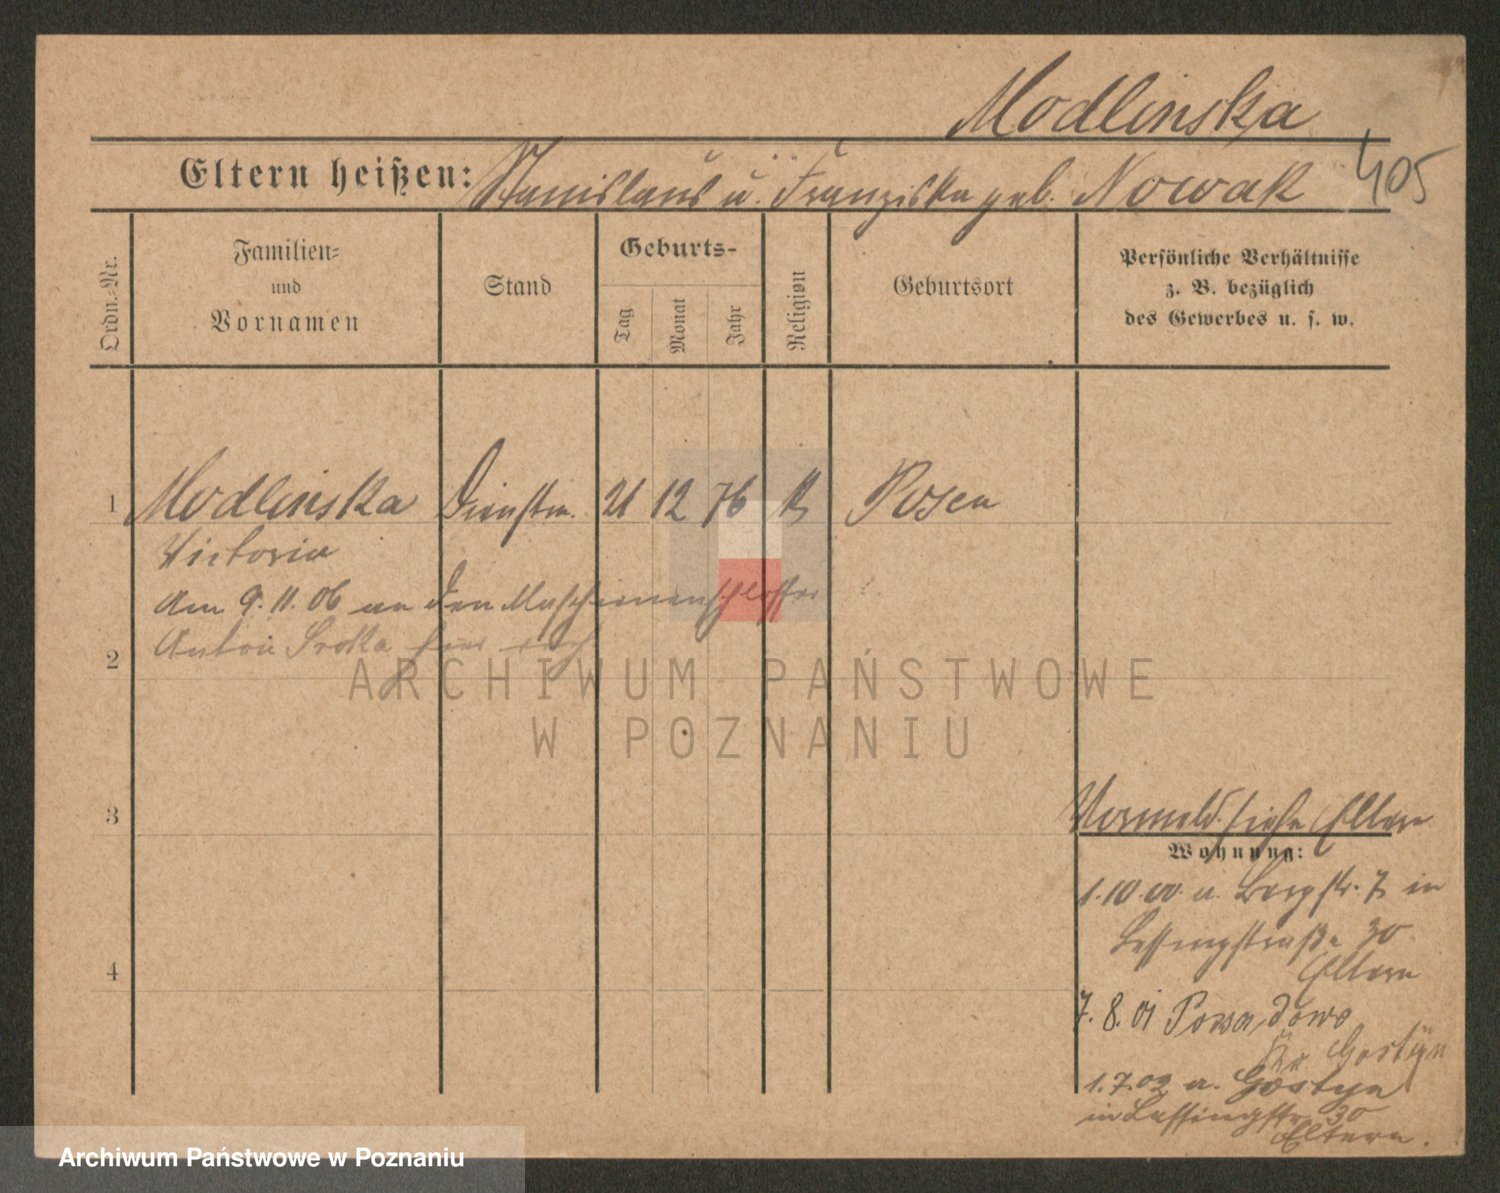 Modlinska
405
Eltern heißen: Stanislaus u. Franziska geb. Nowak
Ordn.-Nr.
Familien=
und
Vornamen
Stand
Geburts-
Tag
Monat
Jahr
Religion
Geburtsort
Persönliche Verhältnisse
z. B. bezüglich
des Gewerbes u. s. w.
1 Modlinska Dienstm. 21 12 76 Posen
Victoria
Am 9.11.06 an den Maschinenschlosser
2 Anton Srokka hier
ARCHIWUM PAŃSTWOWE
W POZNANIU
3
Vormeld. siehe Eltern
Wohnung:
1.10.00. a. Bergstr. 7 in
Lessingstraße 30
Eltern
4
7.8.01
Gostyn
1.7.02 a. Gostyn
in Lessingstr. 30
Eltern.
Archiwum Państwowe w Poznaniu